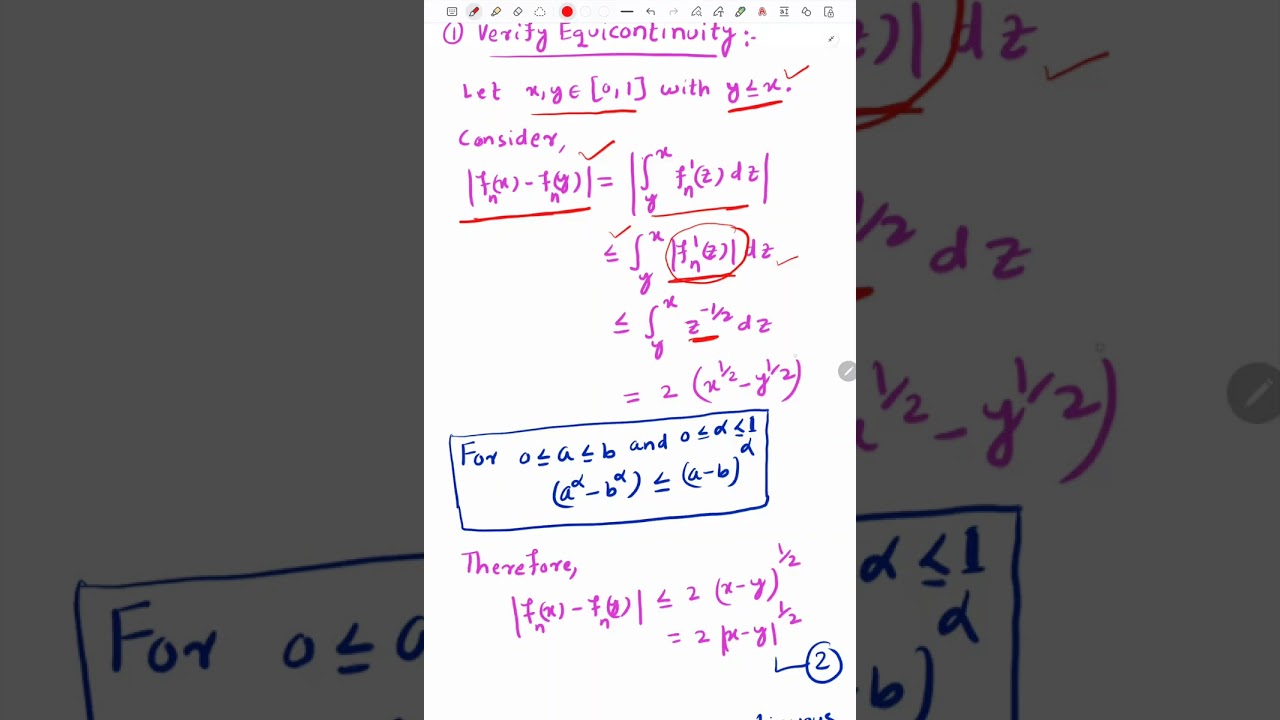 ① Verify Equicontinuity :-
Let x,y ∈ [0,1] with y ≤ x.
Consider,
|fₙ(x) - fₙ(y)| = |∫_y^x fₙ'(z) dz|
≤ ∫_y^x |fₙ'(z)| dz
≤ ∫_y^x z^{-1/2} dz
= 2 (x^{1/2} - y^{1/2})
For 0 ≤ a ≤ b and 0 ≤ α ≤ 1
(a^α - b^α) ≤ (a-b)^α
Therefore,
|fₙ(x) - fₙ(y)| ≤ 2 (x-y)^{1/2}
= 2 |x-y|^{1/2}
②